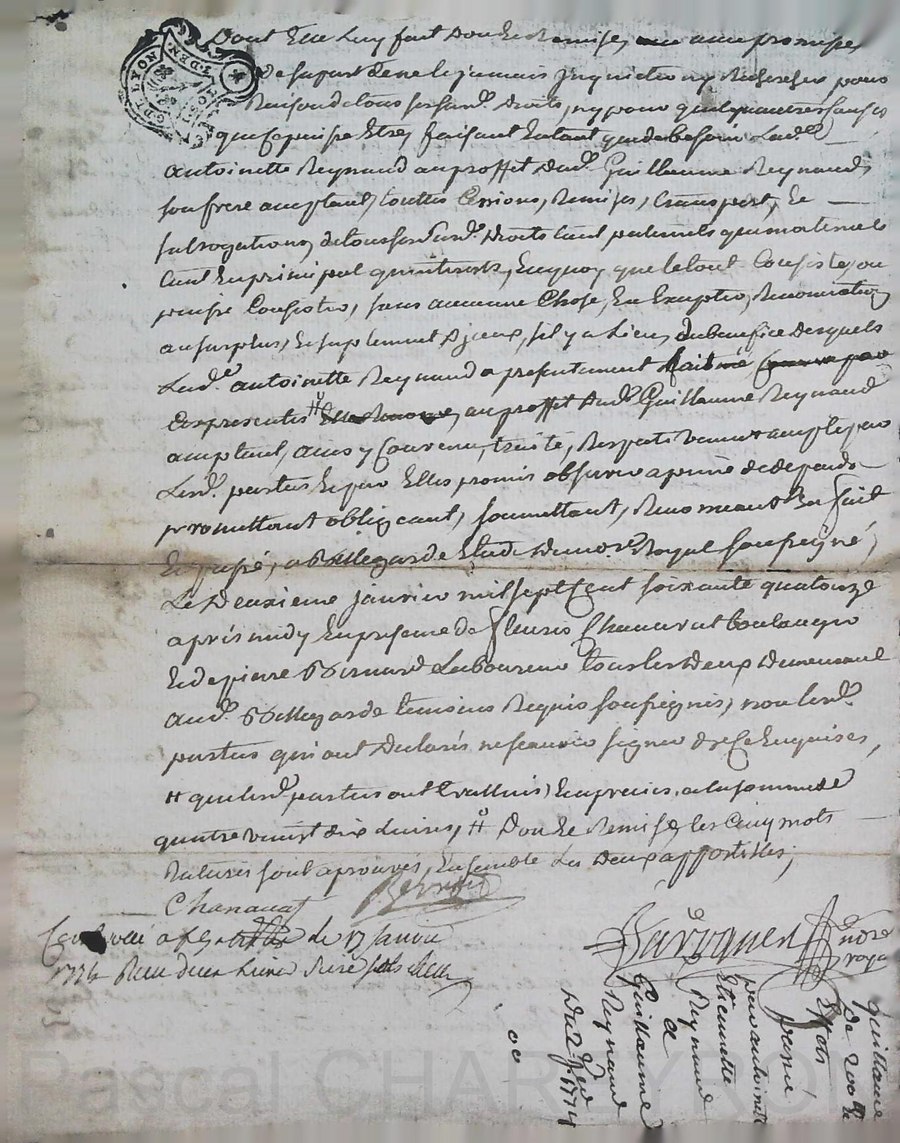 Dont Elle Luy fait Don Et Remise, avec promesse
De sa part de ne le jamais Inquietter ny Rechercher pour
Raison de tous ses susd. Droits, ny pour quelqu'autres causes
que ce puisse Etre, faisant Entant que de besoin Lad.e
antoinette Reynaud au proffet dud. Guillaume Reynaud
son frere acceptant, touttes Cessions, Remises, transport, Et
subrogations, de tous sesd. susd. Droits tant paternels que maternels
tant En principal qu'interets, En quoy que le tout Consiste, ou
puisse Consister, sans aucunne Chose, En Excepter, Renonciation
au surplus, Et suplement d'Iceux, s'il y a Lieu, du beneffice desquels
Lad.e antoinette Reynaud a presentement fait
Ces presentes # au proffet dud. Guillaume Reynaud
acceptant, ainsy Convenu, traité, Respectivement accepté par
Lesd. parties Et par Elles promis observer a peine de depends
promettant obligeant, soumettant, Renonceant &a fait
Et passé, a Bellegarde Etude du no.re Royal soussigné,
Le Deuxieme janvier mil sept Cent soixante quatorze
aprés midy En presence de fleurie Chanavat boulanger
Et de pierre Bernard Laboureur tous les deux demeurant
aud. Bellegarde temoins Requis soussignés, non lesd.
parties qui ont Declarés ne scavoir signer de ce Enquises,
# que lesd. parties ont Evalluées, En precies, a la somme de
quatre vingt dix Livres, # Don Et Remise, les Cinq mots
Raturés sont aprouvés, Ensemble Les Deux appostilles,
Chanavat Bernard
le 17 janvier
1774 Reçu deux Livres
no.re
roya
Guillaume
De
Expéd.
pour antoinette
Etiennette
Reynaud
a
Guillaume
Reynaud
Du 2 janv. 1774
G. DE LYON
2. DEN
Pascal CHARLEYRON